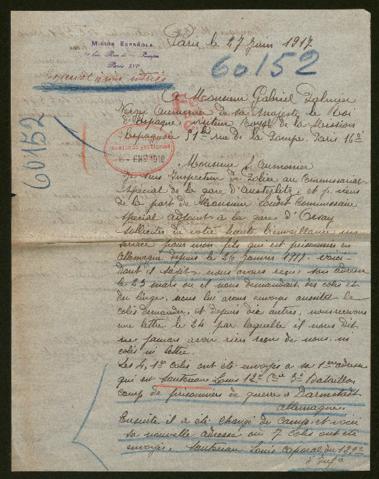 Paris le 27 Juin 1917
MISIÓN ESPAÑOLA
51 bis Rue de la Pompe
Paris XVIe
60152
A Monsieur Gabriel Palmer
Aumonier de sa Majesté le Roi
d'Espagne de la Mission
Espagnole 51bis rue de la Pompe Paris 16e
60152
Monsieur l'Aumonier
Je suis Inspecteur de Police au Commissariat
Spécial de la gare d'Austerlitz et je viens
de la part de Monsieur Commissaire
Spécial adjoint à la gare d'Orsay
solliciter de votre haute bienveillance un
service pour mon fils qui est prisonnier en
Allemagne depuis le 26 Janvier 1917.
dont il s'agit: nous avons reçu
le 23 mars où il nous demandait des colis et
du linge, nous lui avons envoyé aussitôt le
colis demandé, et depuis dix autres, nous recevons
une lettre le 24 par laquelle il nous dit
jamais avoir rien reçu de nous, ni
colis ni lettre.
Les 4 1ers colis ont été envoyés à sa 1ère adresse
qui est Louis 12e Cie 3e Bataillon
camp de prisonniers de guerre à Darmstadt
Allemagne.
Ensuite il a été changé de camp et voici
sa nouvelle adresse où 7 colis ont été
envoyés. Louis caporal du
d'Infie